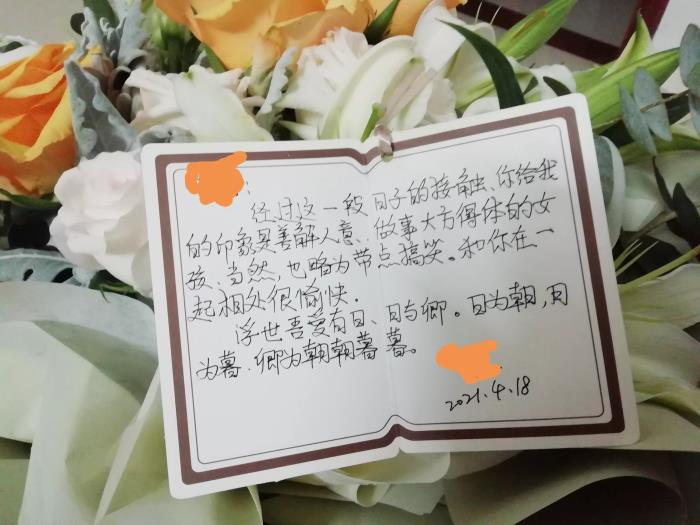 :
经过这一段日子的接触、你给我
的印象是善解人意、做事大方得体的女
孩、当然，也略为带点搞笑。和你在一
起相处很愉快.
浮世吾爱有日、月与卿。日为朝,月
为暮.卿为朝朝暮暮。
2021.4.18